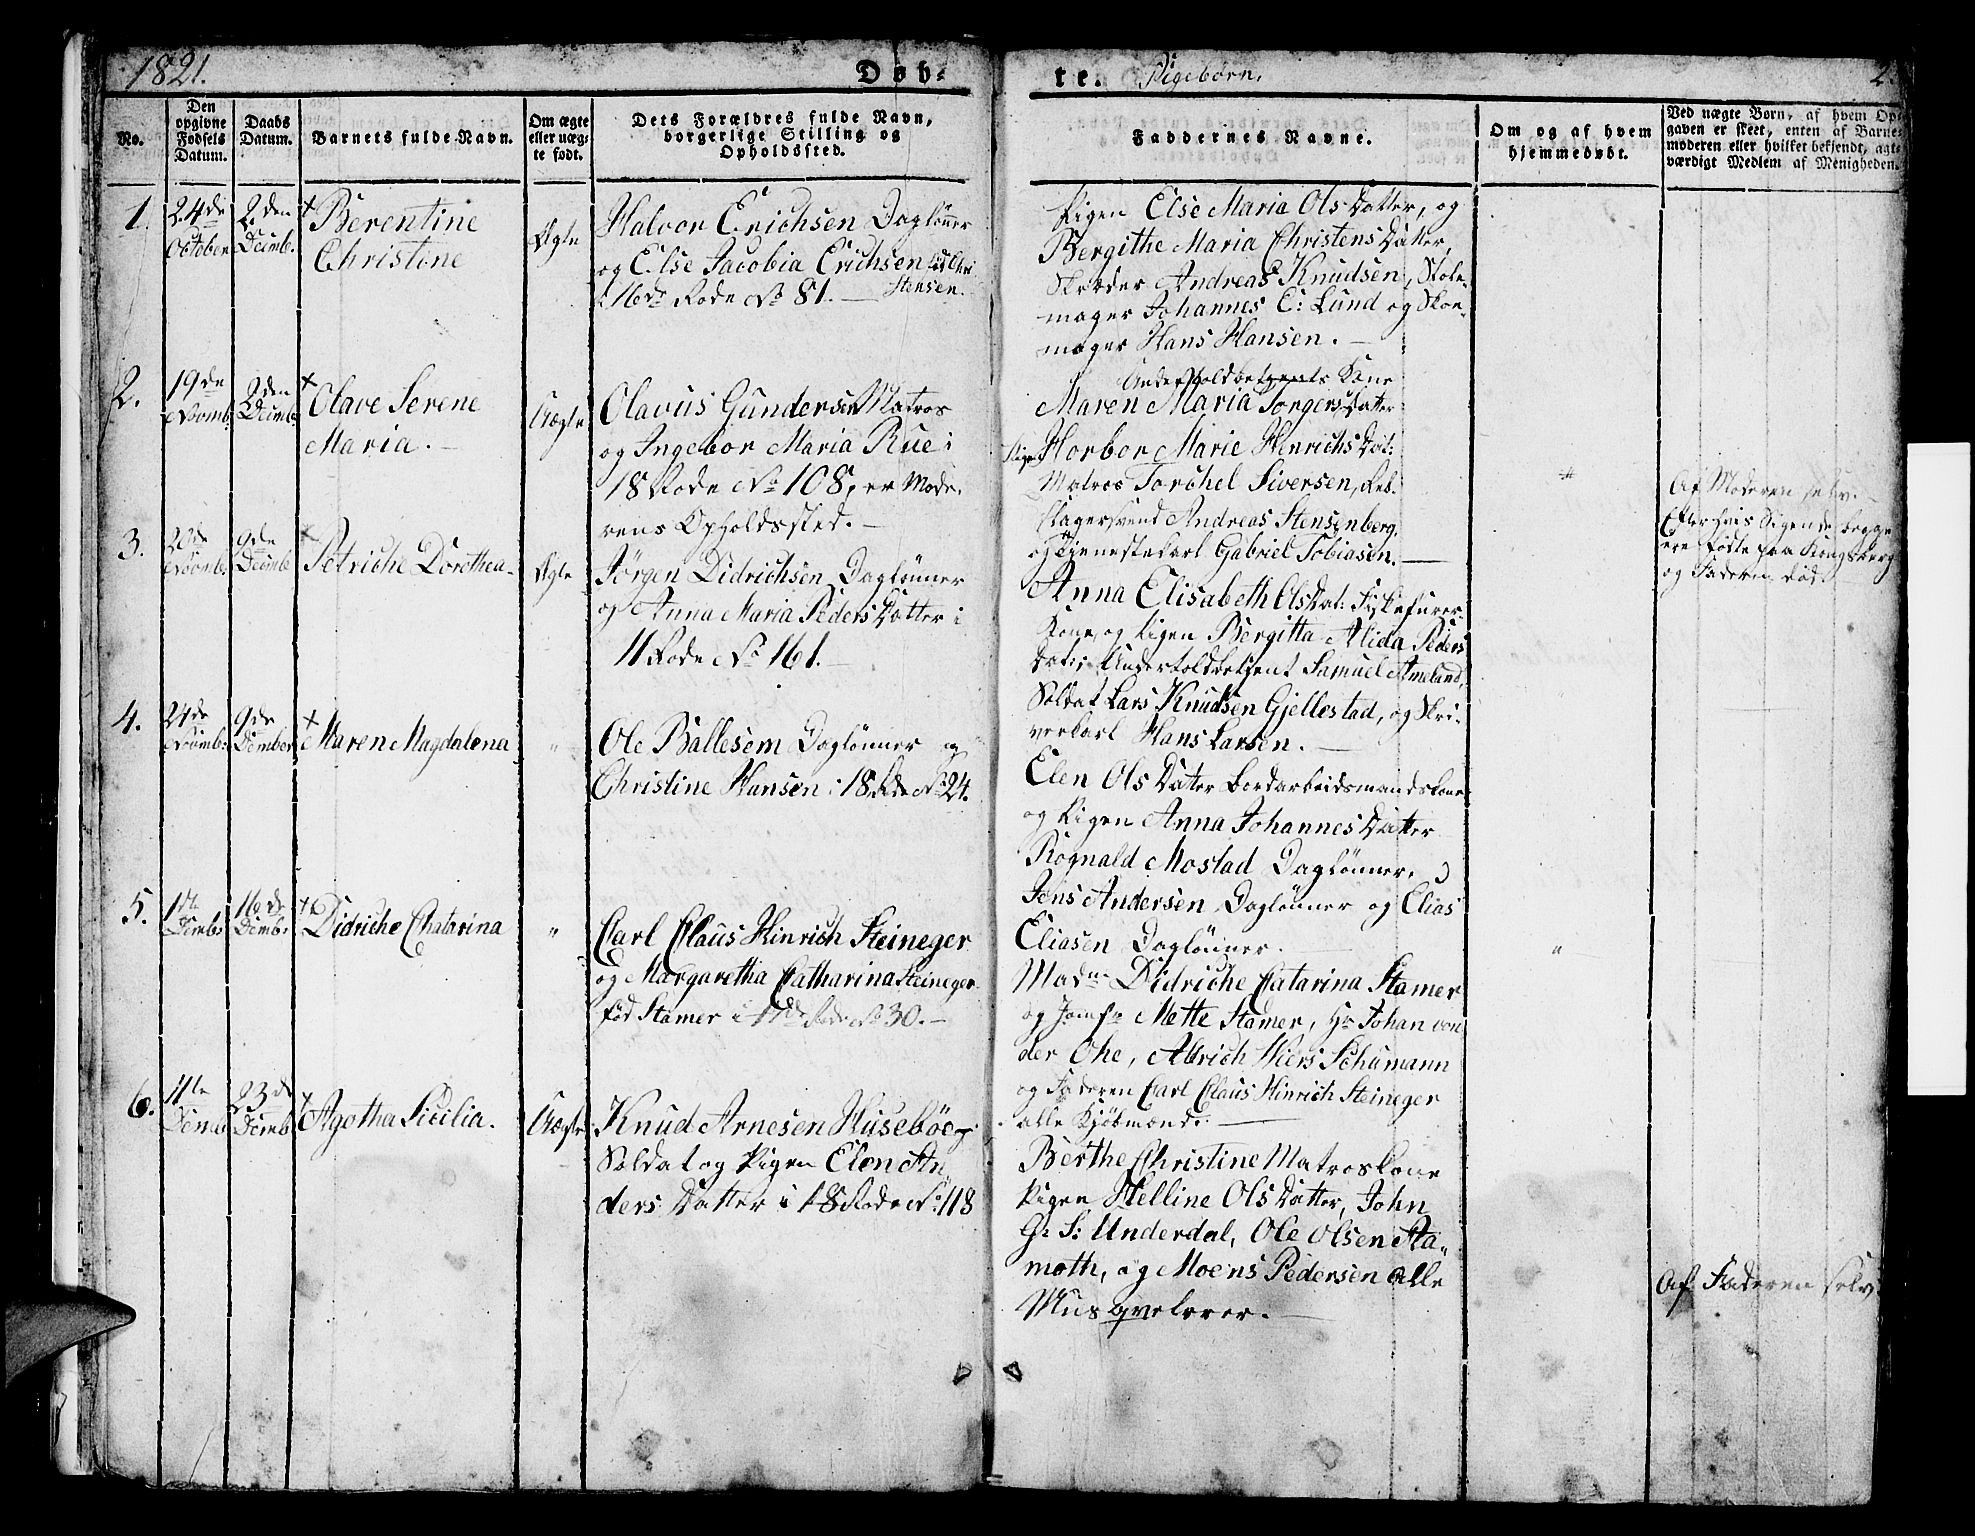 1821.
Døb-
te. Pigebørn.
2.
No.
Den
opgivne
Fødsels
Datum.
Daabs
Datum.
Barnets fulde Navn.
Om ægte
eller uæg-
te født.
Dets Forældres fulde Navn,
borgerlige Stilling og
Opholdssted.
Faddernes Navne.
Om og af hvem
hjemmedøbt.
Ved uægte Børn, af hvem Op-
gaven er skeet, enten af Barne-
moderen eller hvilket bekjendt, agt-
værdigt Medlem af Menigheden.
1.
24de
October
2den
Decmb:
Berentine
Christine
Ægte
Halvor Erichsen Dagløner
og Else Jacobia Erichsen fød Chri
stensen
i 16de Rode No 81.
Pigen Else Maria Ols Datter, og
Bergithe Maria Christens Datter,
Skræder Andreas Knudsen, Stole-
mager Johannes C: Lund og Skoe-
mager Hans Hansen.
2.
19de
Novmb:
2den
Decmb:
Olave Serene
Maria.
Uægte
Olavus Gundersen Matros
og Ingebor Maria Rue i
18 Rode No 108, er Mode-
rens Opholdssted.
Undertoldbetjents Kone
Maren Maria Torgers Datter
Pige Horbor Marie Henrichs Dat:
Matros Torchel Siversen, Reb-
slagersvend Andreas Stensenberg,
og Tjenestekarl Gabriel Tobiasen.
Af Moderen selv.
Efter hvis Sigende begge
ere fødte paa Kongsberg
og Faderen død.
3.
20de
Novmb:
9de
Decmb
Petriche Dorothea
Ægte
Jörgen Didrichsen Daglønner
og Anna Maria Peders Datter i
11 Rode No 161.
Anna Elisabeth Ols Dat:
Kone, og Pigen Bergitta Alida Peders
Dat:, Undertoldbetjent Samuel Ameland,
Soldat Lars Knudsen Gjellestad, og Skri-
verkarl Hans Larsen.
4.
24de
Novmb:
9de
Dcember
Maren Magdalena
"
Ole Ballesem Daglønner og
Christine Hansen i 18 Rde No 24.
Elen Ols Datter Bordarbeidsmandskone
og Pigen Anna Johannes Datter
Rognald Mostad Daglønner,
Jens Andersen Daglønner og Elias
Eliasen Daglønner.
5.
1ste
Dcmb:
16de
Dcmb:
Didriche Chatarina
"
Carl Claus Hinrich Steineger
og Margaretha Catharina Steineger
fød Stamer i 17de Rode No 30.
Madme Didriche Catarina Stamer
og Jomfr Mette Stamer, Hr Johan von
der Ohe, Albrich Wiers Schumann
og Faderen Carl Claus Hinrich Steineger
alle Kjøbmænd.
"
6.
11te
Dcmb
23de
Dcmb
Agotha Sicilia.
Uægte
Knud Arnesen Husebøe
Soldat og Pigen Elen An
ders Datter i 18 Rode No. 118
Berthe Christine Matroskone
Pigen Helline Ols Datter, John
G: S: Underdal, Ole Olsen Aa-
moth, og Moens Pedersen alle
Musqveterer.
Af Faderen selv.